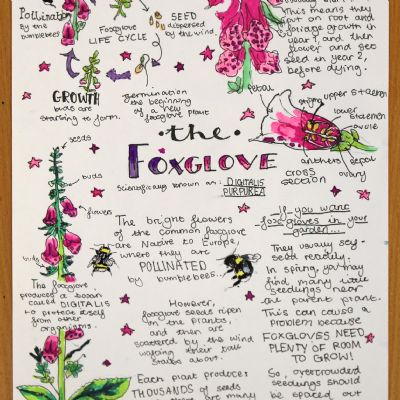 Pollination
by the
bumblebees
Foxglove
LIFE CYCLE
SEED
dispersed
by the wind
This means they
put on root and
foliage growth in
year 1, and then
flower and set
seed in year 2,
before dying.
GROWTH
buds are
starting to form.
germination
the beginning
of a new
foxglove plant
petal
stigma
upper stamen
lower
stamen
ovule
anthers
sepal
ovary
cross
section
the
FOXGLOVE
Scientifically known as: DIGITALIS
PURPUREA
seeds
buds
flowers
The foxglove
produced a toxin
called DIGITALIS
to protect itself
from other
organisms.
The bright flowers
of the common foxglove
are Native to Europe,
where they are
POLLINATED
by bumblebees...
However,
foxglove seeds ripen
on the plants,
and then are
scattered by the wind
wafting their tall
stalks about.
Each plant produces
THOUSANDS of seeds
there are many
If you want
foxgloves in your
garden...
They usually self-
seed readily.
In spring, you may
find many little
seedlings near
the parent plant.
This can cause a
problem because
FOXGLOVES NEED
PLENTY OF ROOM
TO GROW!
So, overcrowded
seedlings should
be spaced out